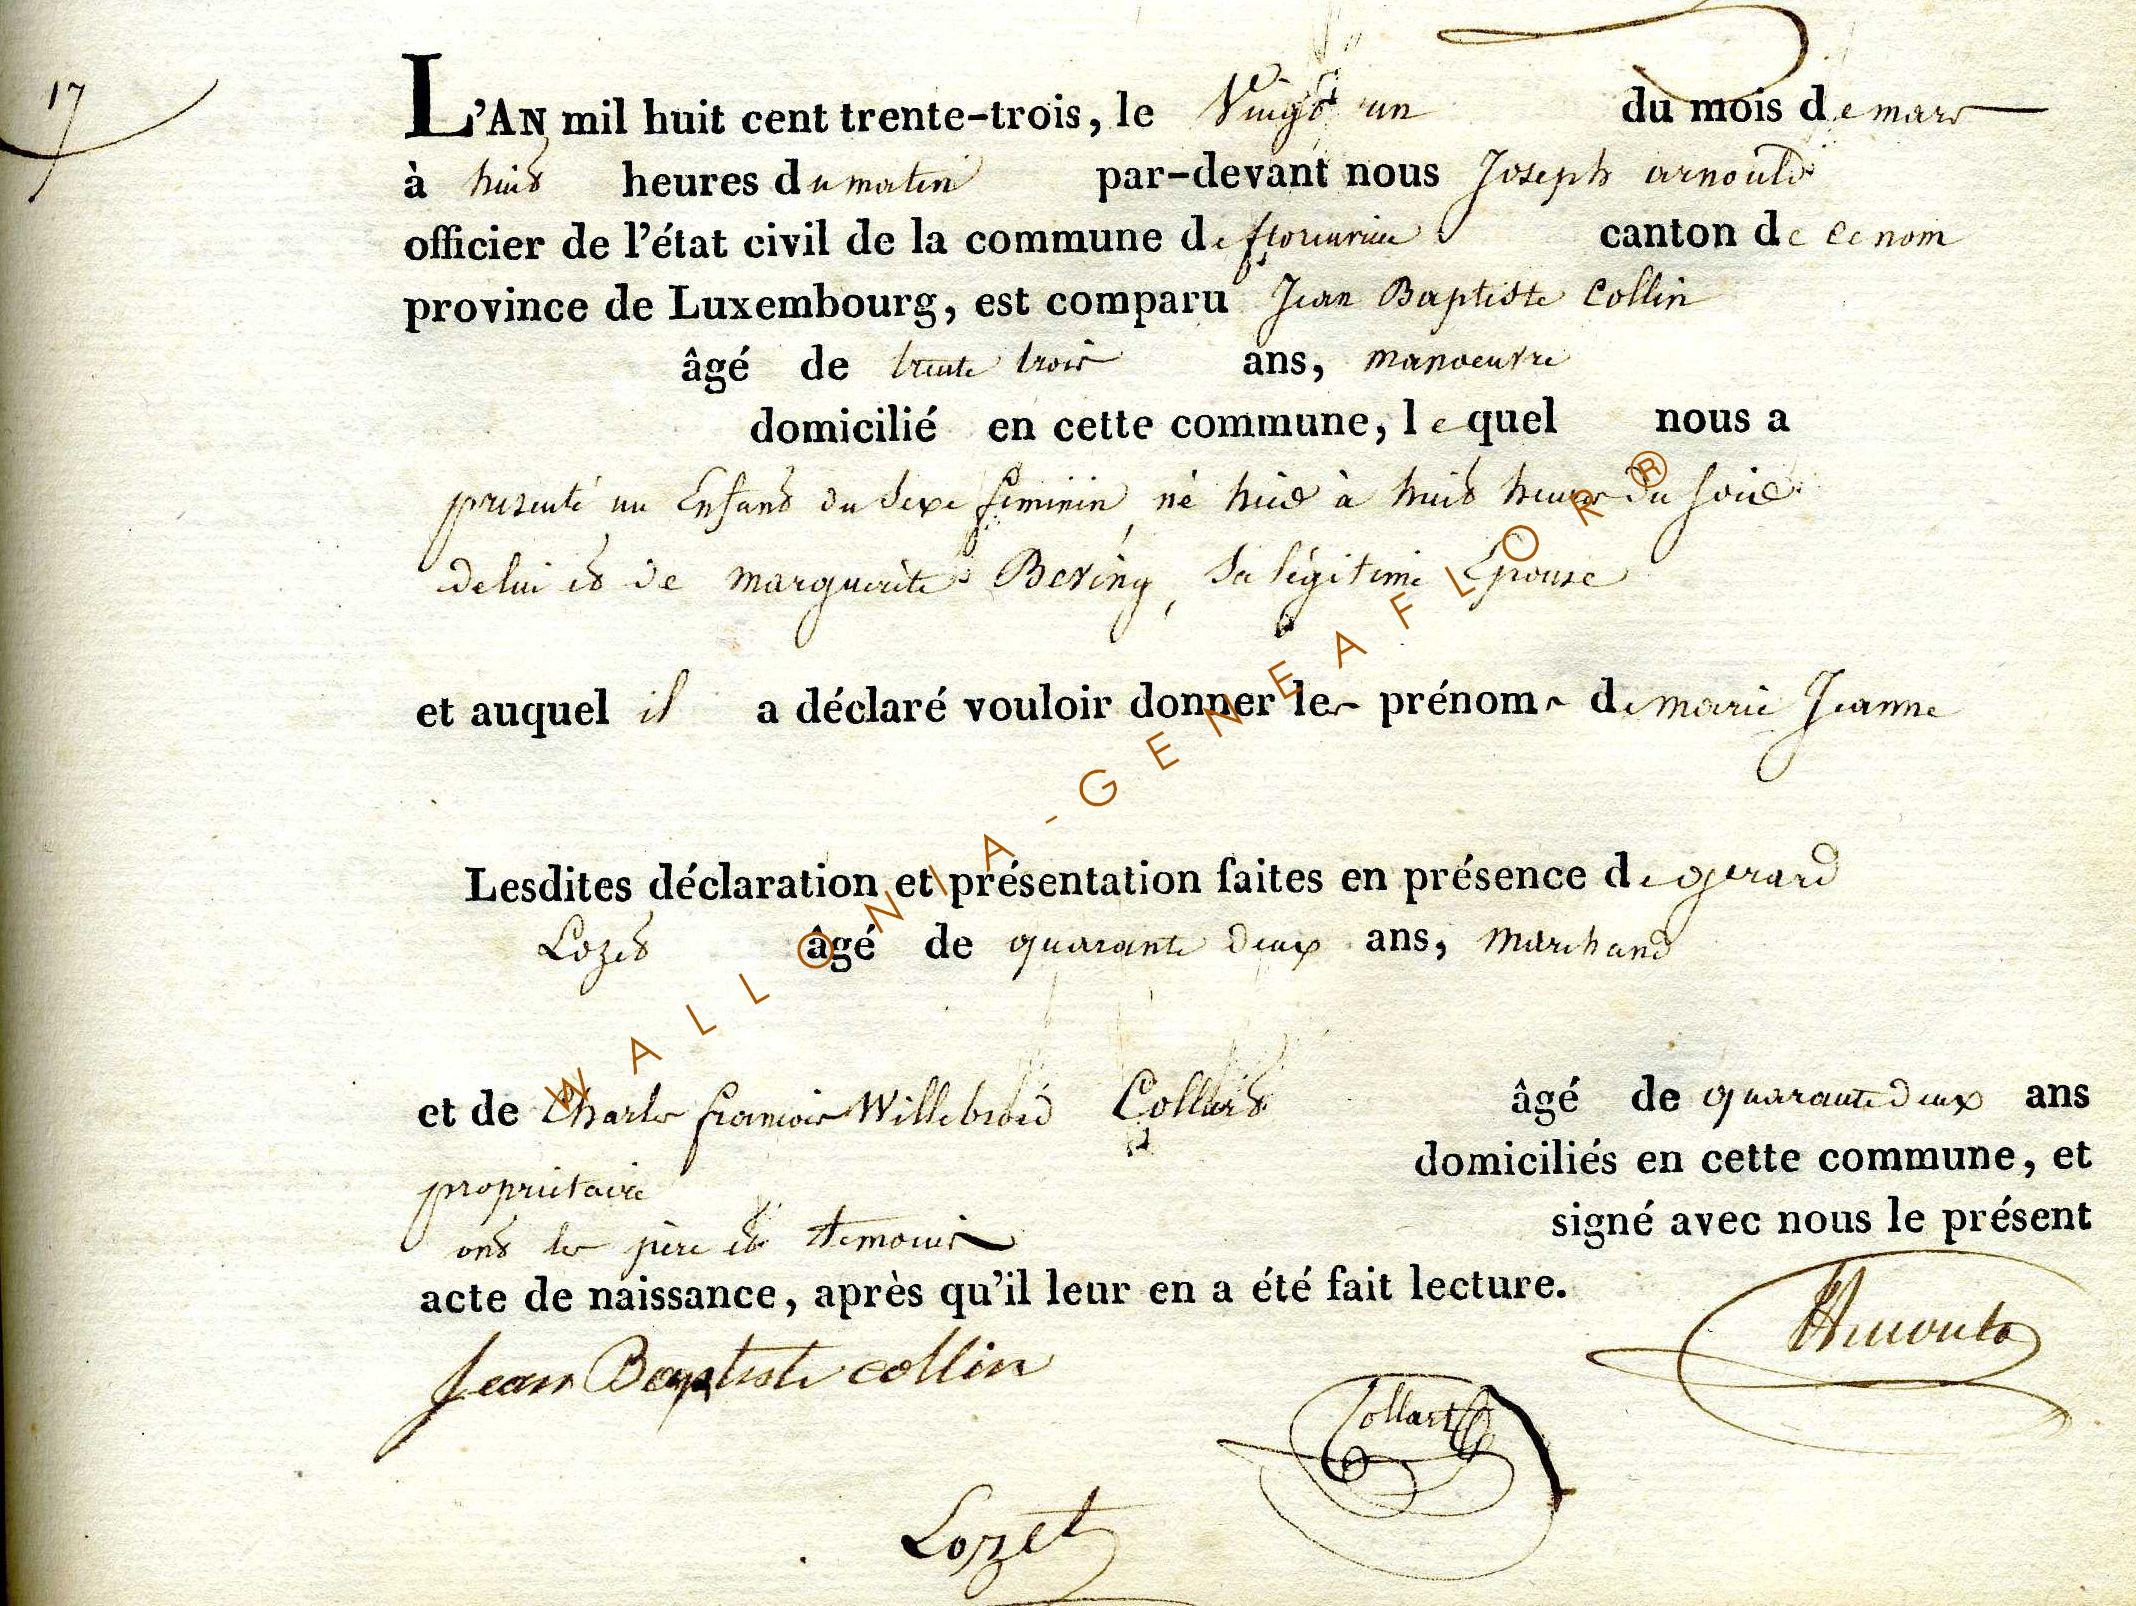 17
L'AN mil huit cent trente-trois, le Vingt un du mois de mars
à huit heures du matin par-devant nous Joseph arnould
officier de l'état civil de la commune de florenville canton de ce nom
province de Luxembourg, est comparu Jean Baptiste Collin
âgé de trente trois ans, manoeuvre
domicilié en cette commune, lequel nous a
presenté un Enfant du Sexe feminin, né hier à huit heures du soir
de lui et de marguerite Bering, sa légitime Epouse
et auquel il a déclaré vouloir donner les prénoms de marie Jeanne
Lesdites déclaration et présentation faites en présence de gerard
Lozet âgé de quarante deux ans, marchand
et de Charles francois Willebrord âgé de quarante deux ans
domiciliés en cette commune, et
propriétaire
signé avec nous le présent
ont les père et temoins
acte de naissance, après qu'il leur en a été fait lecture.
Jean Baptiste collin
Collart
Lozet
WALLONIA-GENEAFLOR®